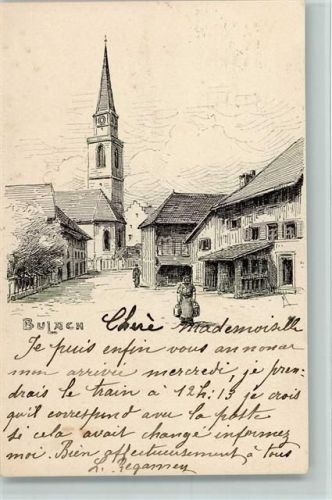 BULACH
Chère Mademoiselle
Je puis enfin vous annoncer
mon arrivée mercredi, je pren-
drais le train à 12h:13 je crois
qu'il correspond avec la poste
se cela avait changé informez
moi. Bien affectueusement à tous
L. Regamey